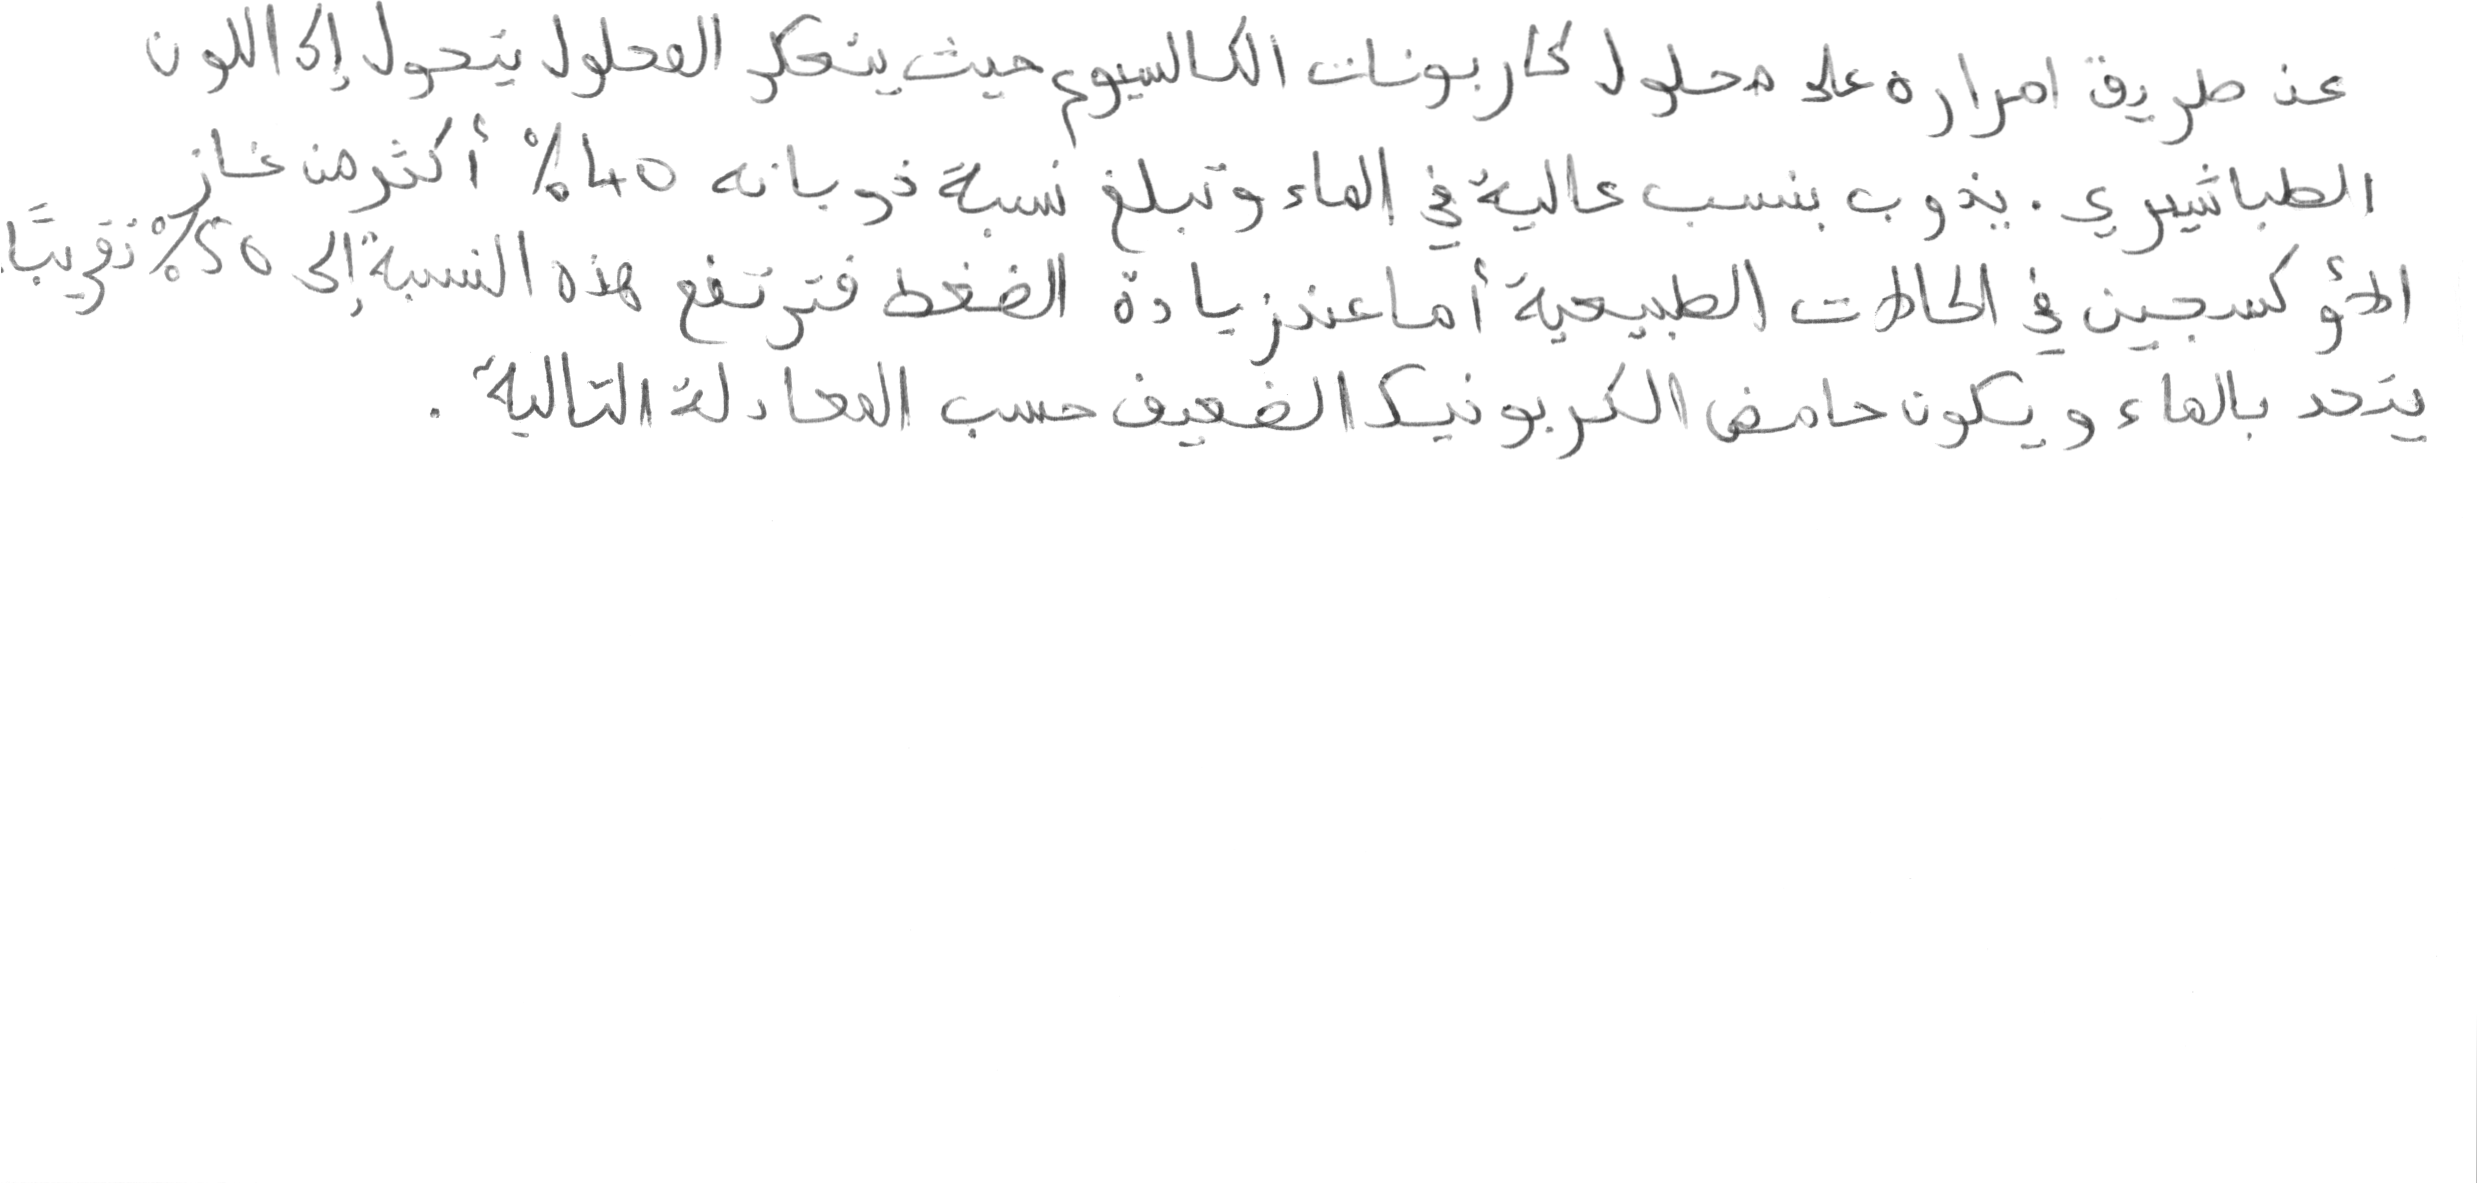 عن طريق امراره على محلول كاربونات الكالسيوم حيث يتعكر المحلول يتحول إلى اللون
الطباشيري. يذوب بنسب عالية في الماء وتبلغ نسبة ذوبانه 40% أكثر من غاز
الأوكسجين في الحالات الطبيعية أما عند زيادة الضغط فترتفع هذه النسبة إلى 50% تقريبًا.
يتحد بالماء ويكون حامض الكربونيك الضعيف حسب المعادلة التالية.